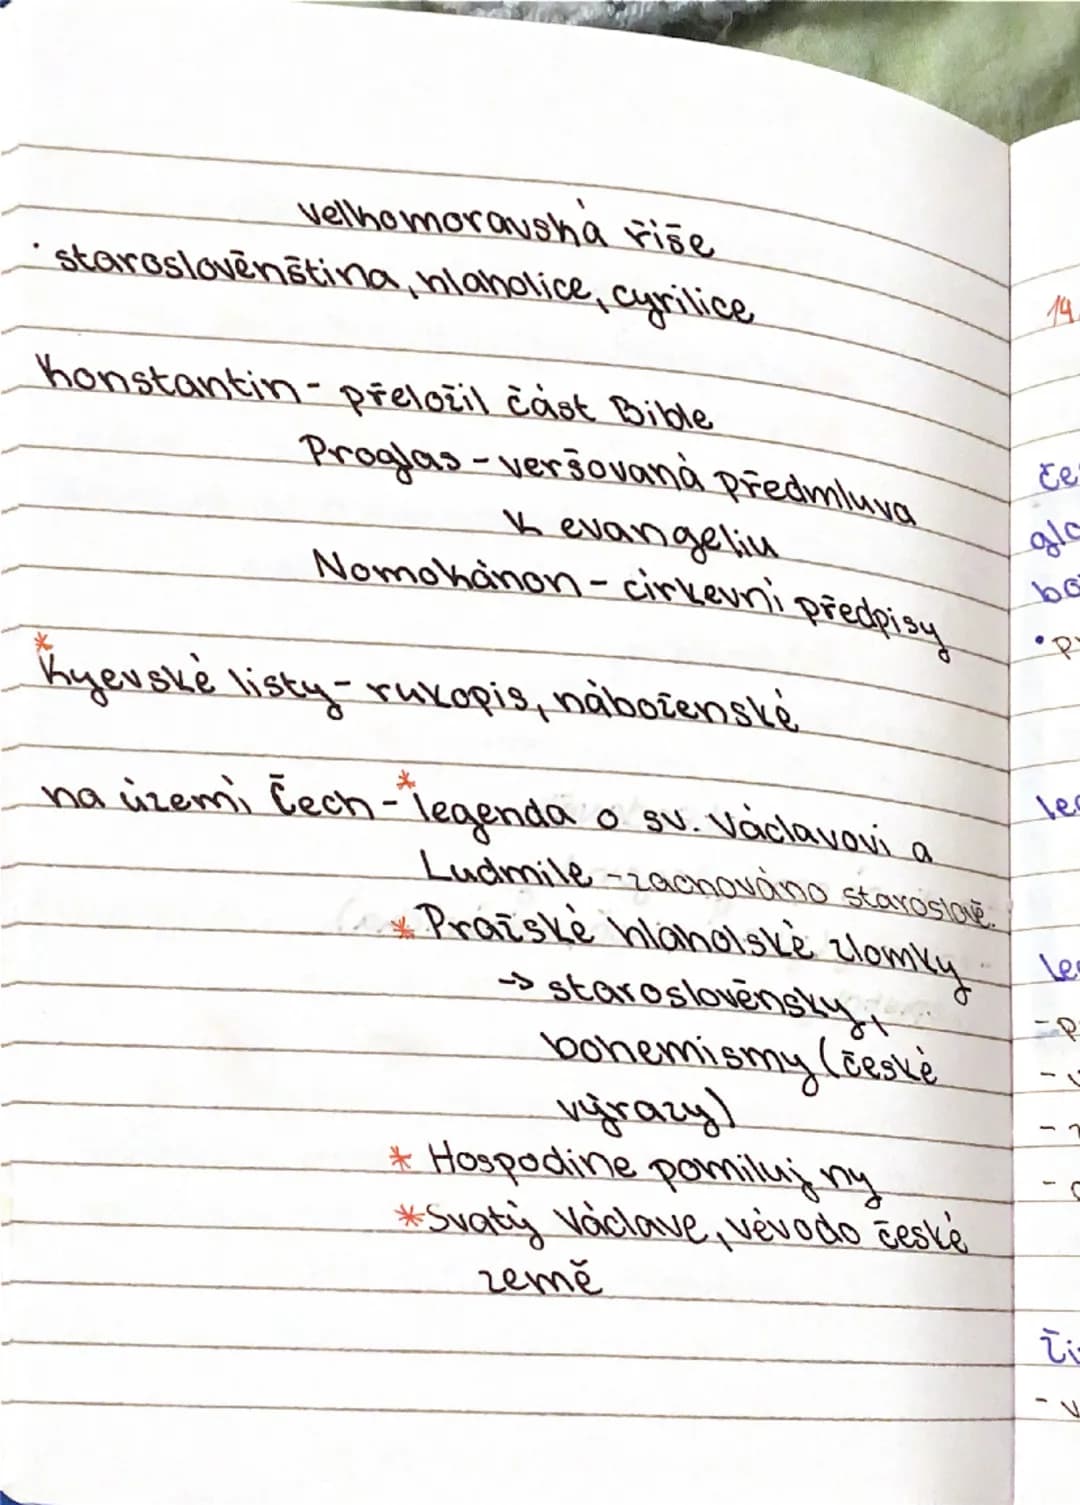 velkomoravská říše
· staroslověnština, hlaholice, cyrilice
Konstantin - přeložil část Bible
Proglas - veršovaná předmluva
k evangeliu
Nomokánon - církevní předpisy
* Kyjevské listy - rukopis, náboženské
na území Čech - * legenda o sv. Václavovi a
Ludmile - zachováno staroslově.
* Pražské hlaholské zlomky
-> staroslověnsky,
bohemismy (české
výrazy)
* Hospodine pomiluj ny
* Svatý Václave, vévodo české
země
14.